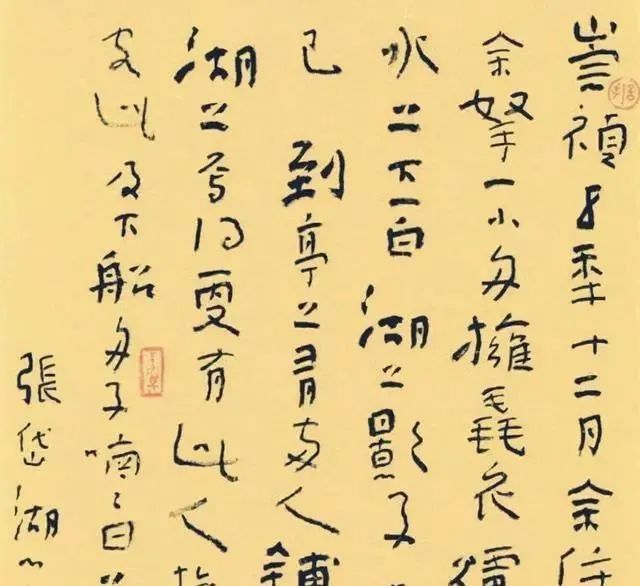 崇禎五年十二月余住
余拏一小舟擁毳衣爐
水上下一白湖上影子
已到亭上有兩人鋪
湖上焉得更有此人
客此及下船舟子喃々曰
張岱湖心